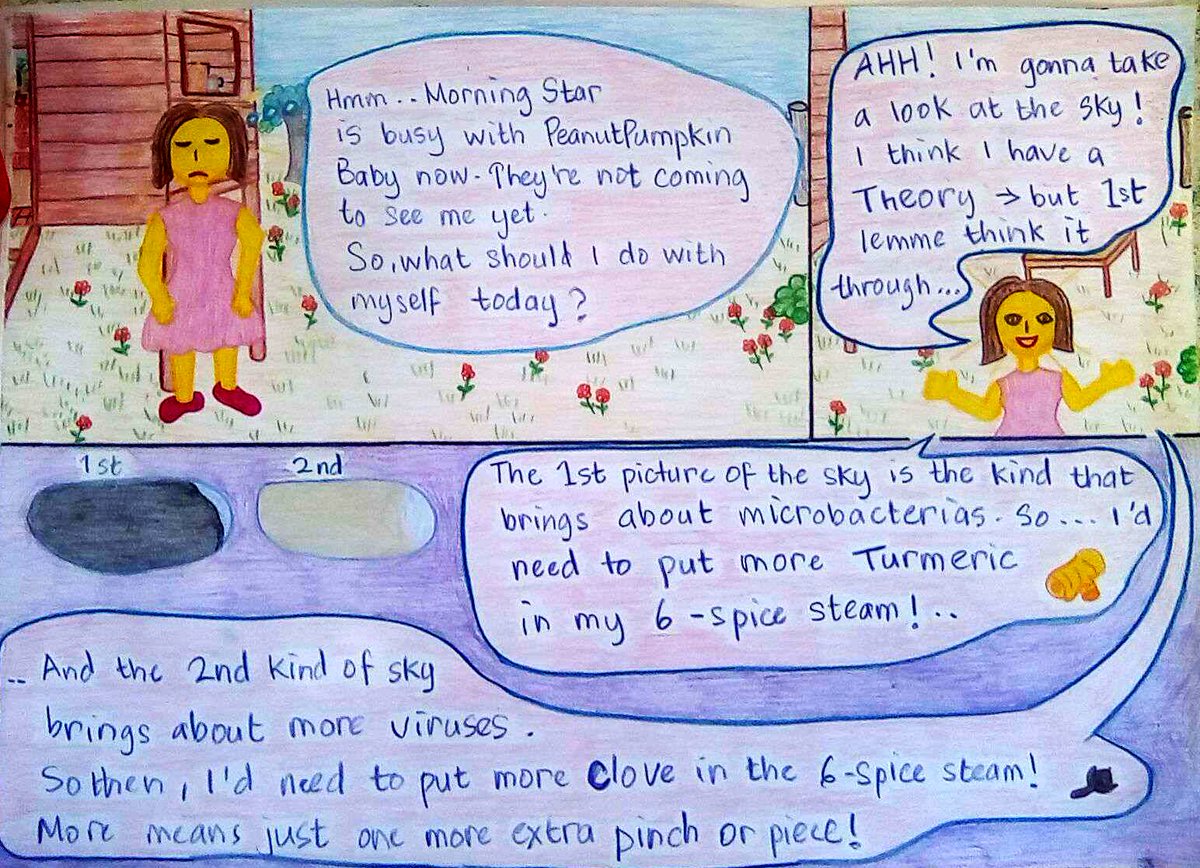 Hmm.. Morning Star
is busy with PeanutPumpkin
Baby now. They're not coming
to see me yet.
So, what should I do with
myself today?
AHH! I'm gonna take
a look at the sky!
I think I have a
Theory → but 1st
lemme think it
through...
1st
2nd
The 1st picture of the sky is the kind that
brings about microbacterias. So... I'd
need to put more Turmeric
in my 6-spice steam!..
.. And the 2nd kind of sky
brings about more viruses.
So then, I'd need to put more Clove in the 6-spice steam!
More means just one more extra pinch or piece!